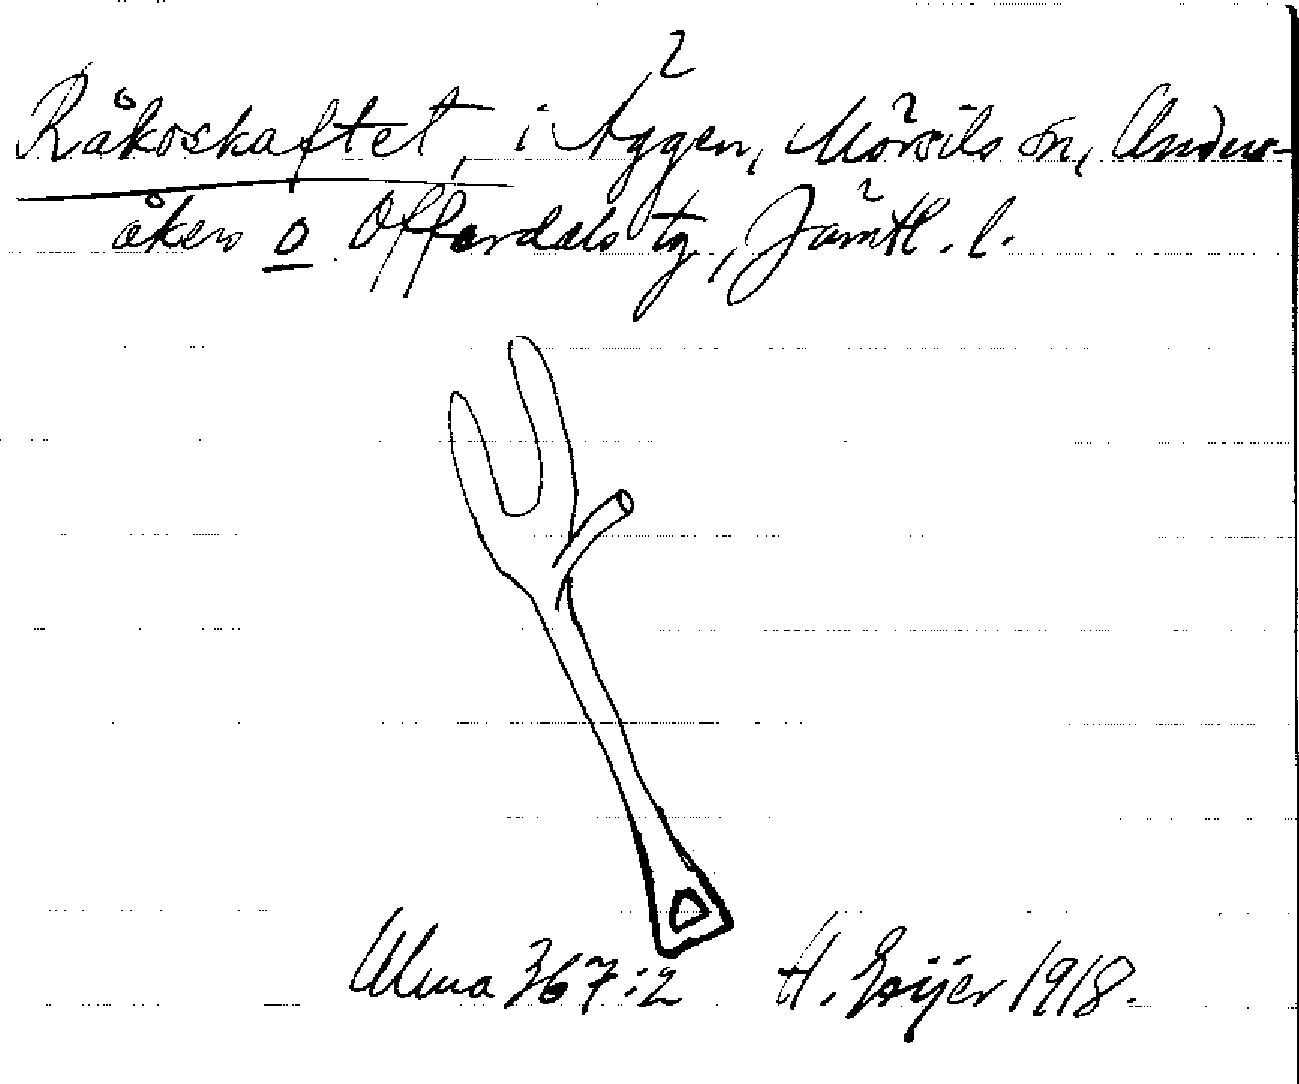 Råkoskaftet, i Äggen, Mörsils sn, Unders-
åkers o Offerdals tg, Jämtl. l.
Ulma 367:2 H. Geijer 1918.